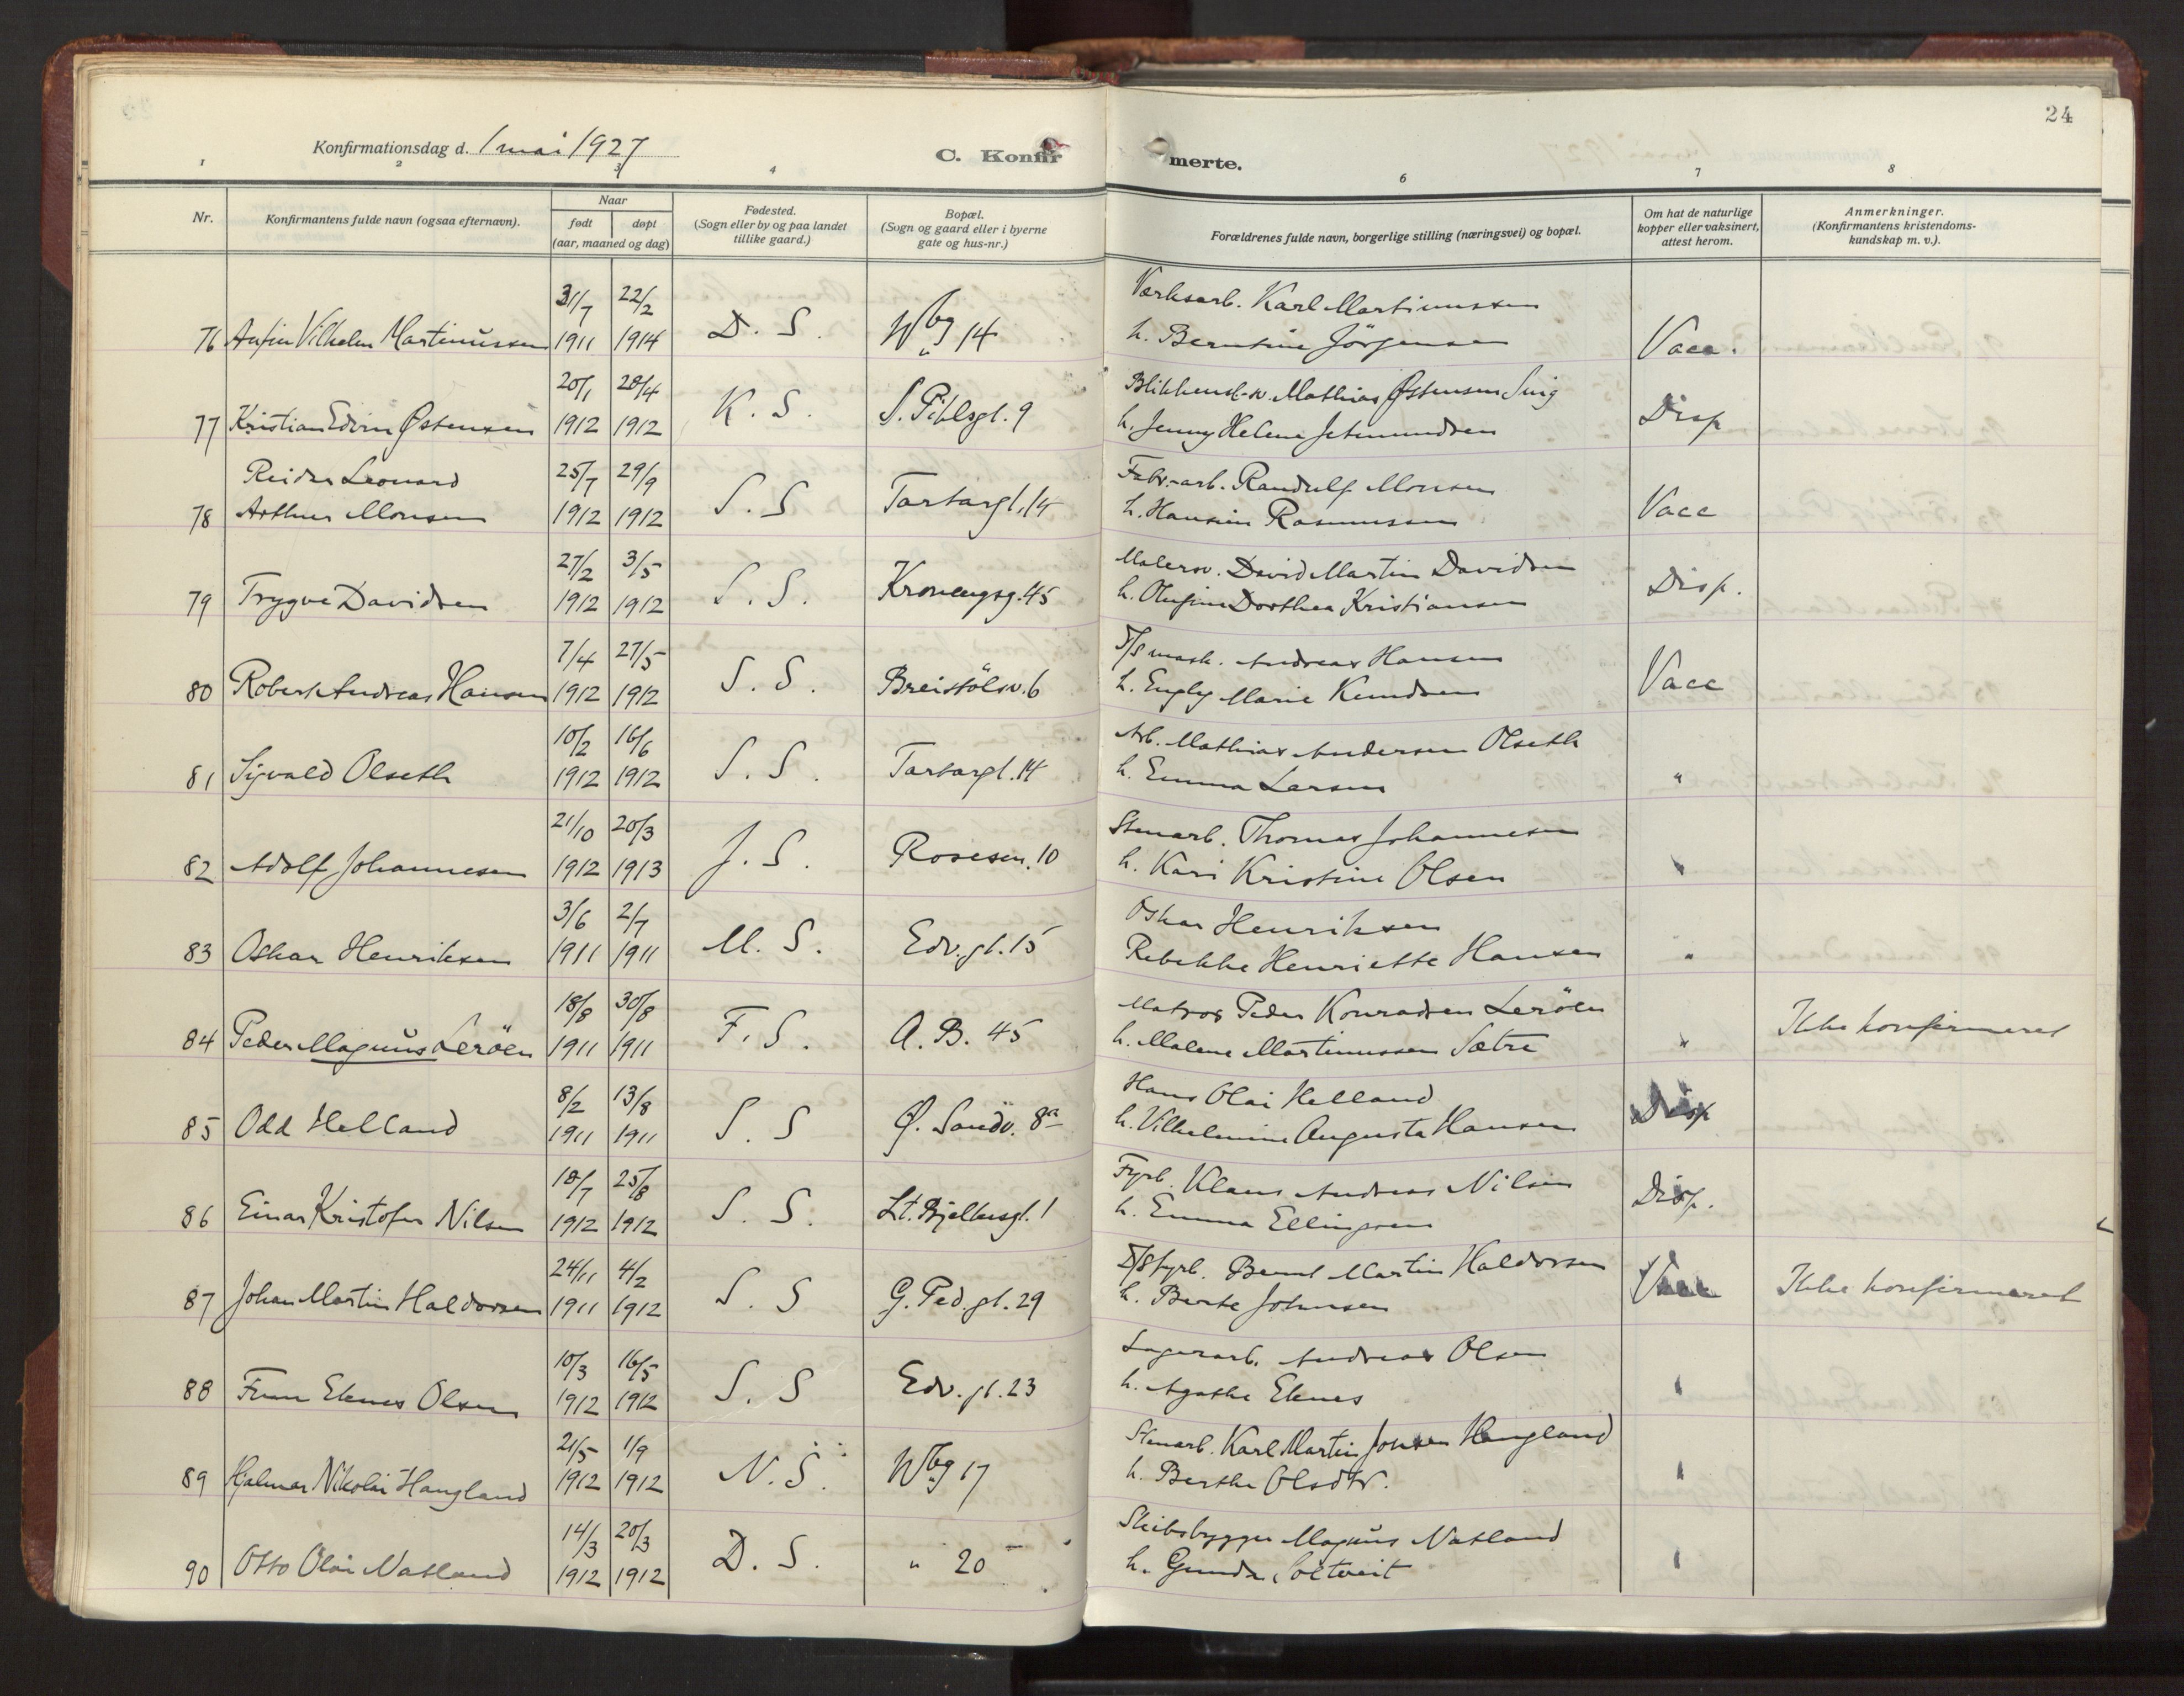 24
Konfirmationsdag d. 1 mai 1927
C. Konfirmerte.
1 2 3 4 6 7 8
Nr.
Konfirmantens fulde navn (ogsaa efternavn).
Naar
født døpt
(aar, maaned og dag)
Fødested.
(Sogn eller by og paa landet
tillike gaard.)
Bopæl.
(Sogn og gaard eller i byerne
gate og hus-nr.)
Forældrenes fulde navn, borgerlige stilling (næringsvei) og bopæl.
Om hat de naturlige
kopper eller vaksinert,
attest herom.
Anmerkninger.
(Konfirmantens kristendoms-
kundskap m. v.).
31/7 22/2 Verksarb. Karl Martinussen
76 Arfin Vilhelm Martinussen 1911 1914 D. S. Wbg 14 h. Berntine Jörgensen Vacc.
20/1 28/4 Mathias Østensen
77 Kristian Edvin Østensen 1912 1912 K. S. S. Pihlsgt. 9 h. Jenny Helene Disp
Reidar Leonard 25/7 29/9 Fabr.-arb. Randulf Monsen
78 Arthur Monsen 1912 1912 S. S Tartargt. 14 h. Hansine Rasmussen Vacc
27/2 3/5 Malersv. David Martin Davidsen
79 Trygve Davidsen 1912 1912 S. S. Kronengsg. 45 h. Olufine Dorthea Kristiansen Disp.
7/4 27/5 D/S mask. Andreas Hansen
80 Robert Andreas Hansen 1912 1912 S. S. Breistölsv. 6 h. Marie Knudsen Vacc
10/2 16/6 Arb. Mathias Andersen Olseth
81 Sigvald Olseth 1912 1912 S. S. Tartargt. 14 h. Emma Larsen "
21/10 20/3 Stenarb. Thomas Johannesen
82 Adolf Johannesen 1912 1913 J. S. Rosesm. 10 h. Kari Kristine Olsen "
3/6 2/7 Oskar Henriksen
83 Oskar Henriksen 1911 1911 M. S. Edv. gt. 15 Rebekke Henriette Hansen "
18/8 30/8 Matros Peder Konradsen Leröen
84 Peder Magnus Leröen 1911 1911 F. S. A. B. 45 h. Malene Martinussen Sætre " Ikke konfirmeret
8/2 13/8 Hans Olai Helland
85 Odd Helland 1911 1911 S. S Ø. Sandv. 8a h. Vilhelmine Augusta Hansen Disp
18/7 25/8 Fyrb. Klaus Andreas Nilsen
86 Einar Kristofer Nilsen 1912 1912 S. S. Lt. Bjelkesgt. 1 h. Emma Ellingsen Disp.
24/11 4/2 D/S fyrb. Bernt Martin Haldorsen
87 Johan Martin Haldorsen 1911 1912 S. S G. Ped. gt. 29 h. Berte Johnsen Vacc Ikke konfirmeret
10/3 16/5 Lagerarb. Andreas Olsen
88 Finn Eknes Olsen 1912 1912 S. S Edv. gt. 23 h. Agathe Eknes "
21/5 1/9 Stenarb. Karl Martin Jonsen Haugland
89 Hjalmar Nikolai Haugland 1912 1912 N. S. Wbg 17 h. Berthe Olsdtr. "
14/3 20/3 Skibsbygger Magnus Natland
90 Otto Olai Natland 1912 1912 D. S. " 20 h. Gunda Soltveit "